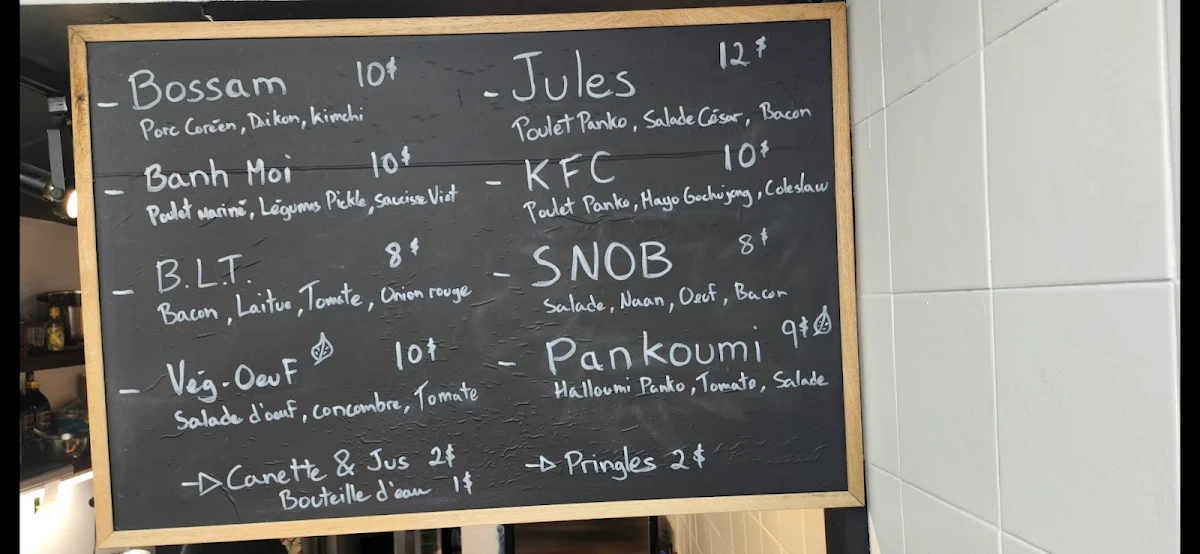 - Bossam 10$
Porc Coréen, Daikon, Kimchi
- Banh Moi 10$
Poulet mariné, Légumes Pickle, Saucisse Viet
- B.L.T. 8$
Bacon, Laitue, Tomate, Onion rouge
- Vég-Oeuf 10$
Salade d'oeuf, concombre, Tomate
→ Canette & Jus 2$
Bouteille d'eau 1$
- Jules 12$
Poulet Panko, Salade César, Bacon
- KFC 10$
Poulet Panko, Mayo Gochujang, Coleslaw
- SNOB 8$
Salade, Naan, Oeuf, Bacon
- Pankoumi 9$
Halloumi Panko, Tomato, Salade
→ Pringles 2$